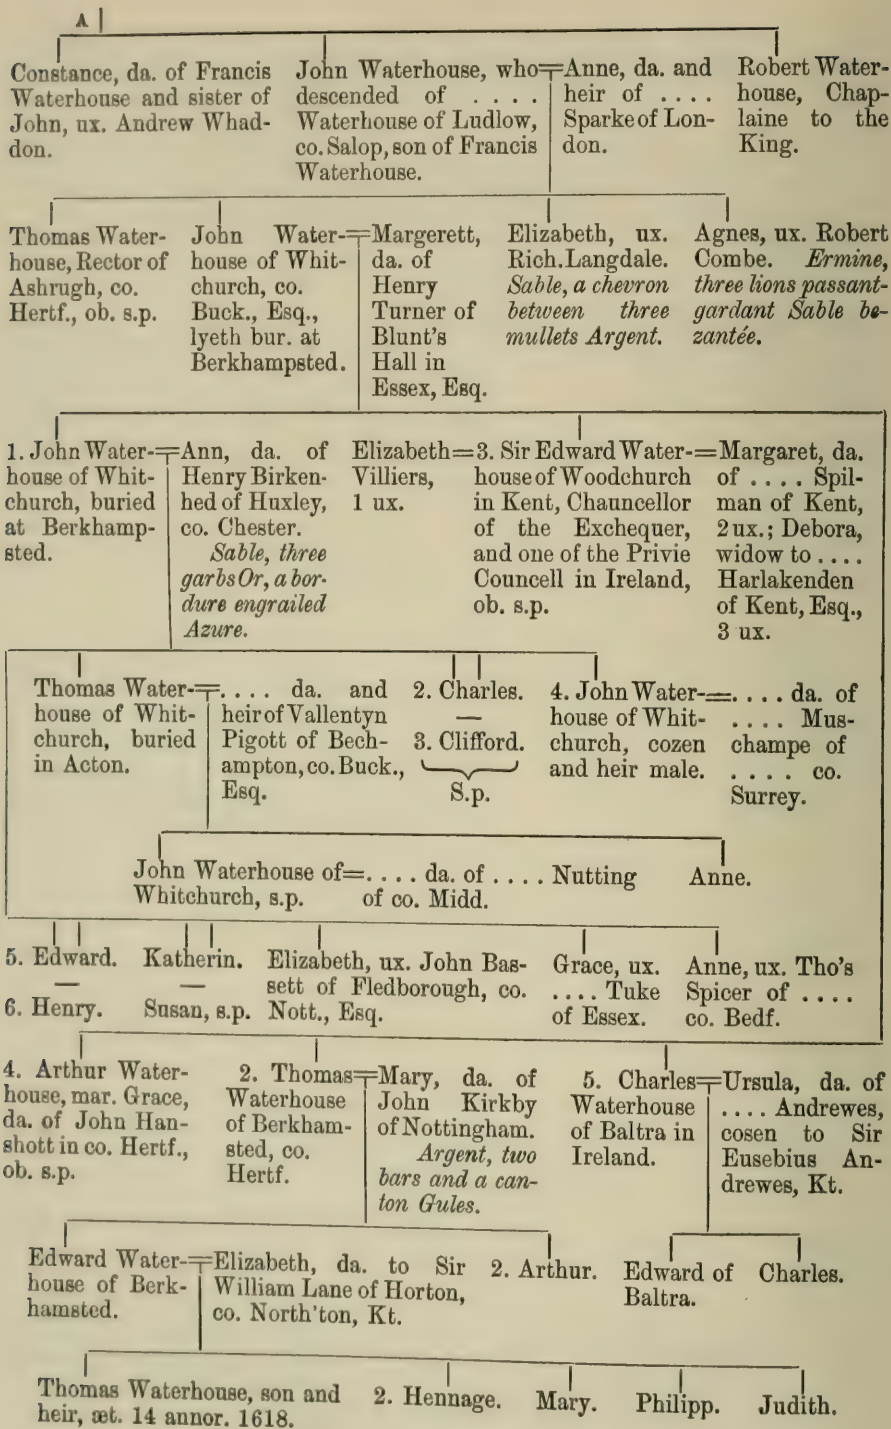 A
Constance, da. of Francis
Waterhouse and sister of
John, ux. Andrew Whad-
don.
John Waterhouse, who=
descended of . . . .
Waterhouse of Ludlow,
co. Salop, son of Francis
Waterhouse.
Anne, da. and
heir of . . . .
Sparke of Lon-
don.
Robert Water-
house, Chap-
laine to the
King.
Thomas Water-
house, Rector of
Ashrugh, co.
Hertf., ob. s.p.
John Water-=
house of Whit-
church, co.
Buck., Esq.,
lyeth bur. at
Berkhampsted.
Margerett,
da. of
Henry
Turner of
Blunt's
Hall in
Essex, Esq.
Elizabeth, ux.
Rich. Langdale.
Sable, a chevron
between three
mullets Argent.
Agnes, ux. Robert
Combe. Ermine,
three lions passant-
gardant Sable be-
zantée.
1. John Water-=
house of Whit-
church, buried
at Berkhamp-
sted.
Ann, da. of
Henry Birken-
hed of Huxley,
co. Chester.
Sable, three
garbs Or, a bor-
dure engrailed
Azure.
Elizabeth=
Villiers,
1 ux.
3. Sir Edward Water-=
house of Woodchurch
in Kent, Chauncellor
of the Exchequer,
and one of the Privie
Councell in Ireland,
ob. s.p.
Margaret, da.
of . . . . Spil-
man of Kent,
2 ux.; Debora,
widow to . . . .
Harlakenden
of Kent, Esq.,
3 ux.
Thomas Water-=
house of Whit-
church, buried
in Acton.
. . . . da. and
heir of Vallentyn
Pigott of Bech-
ampton, co. Buck.,
Esq.
2. Charles.
—
3. Clifford.
S.p.
4. John Water-=
house of Whit-
church, cozen
and heir male.
. . . . da. of
. . . . Mus-
champe of
. . . . co.
Surrey.
John Waterhouse of=
Whitchurch, s.p.
. . . . da. of . . . . Nutting
of co. Midd.
Anne.
5. Edward.
—
6. Henry.
Katherin.
—
Susan, s.p.
Elizabeth, ux. John Bas-
sett of Fledborough, co.
Nott., Esq.
Grace, ux.
. . . . Tuke
of Essex.
Anne, ux. Tho's
Spicer of . . . .
co. Bedf.
4. Arthur Water-
house, mar. Grace,
da. of John Han-
shott in co. Hertf.,
ob. s.p.
2. Thomas=
Waterhouse
of Berkham-
sted, co.
Hertf.
Mary, da. of
John Kirkby
of Nottingham.
Argent, two
bars and a can-
ton Gules.
5. Charles=
Waterhouse
of Baltra in
Ireland.
Ursula, da. of
. . . . Andrewes,
cosen to Sir
Eusebius An-
drewes, Kt.
Edward Water-=
house of Berk-
hamsted.
Elizabeth, da. to Sir
William Lane of Horton,
co. North'ton, Kt.
2. Arthur.
Edward of
Baltra.
Charles.
Thomas Waterhouse, son and
heir, æt. 14 annor. 1618.
2. Hennage.
Mary.
Philipp.
Judith.